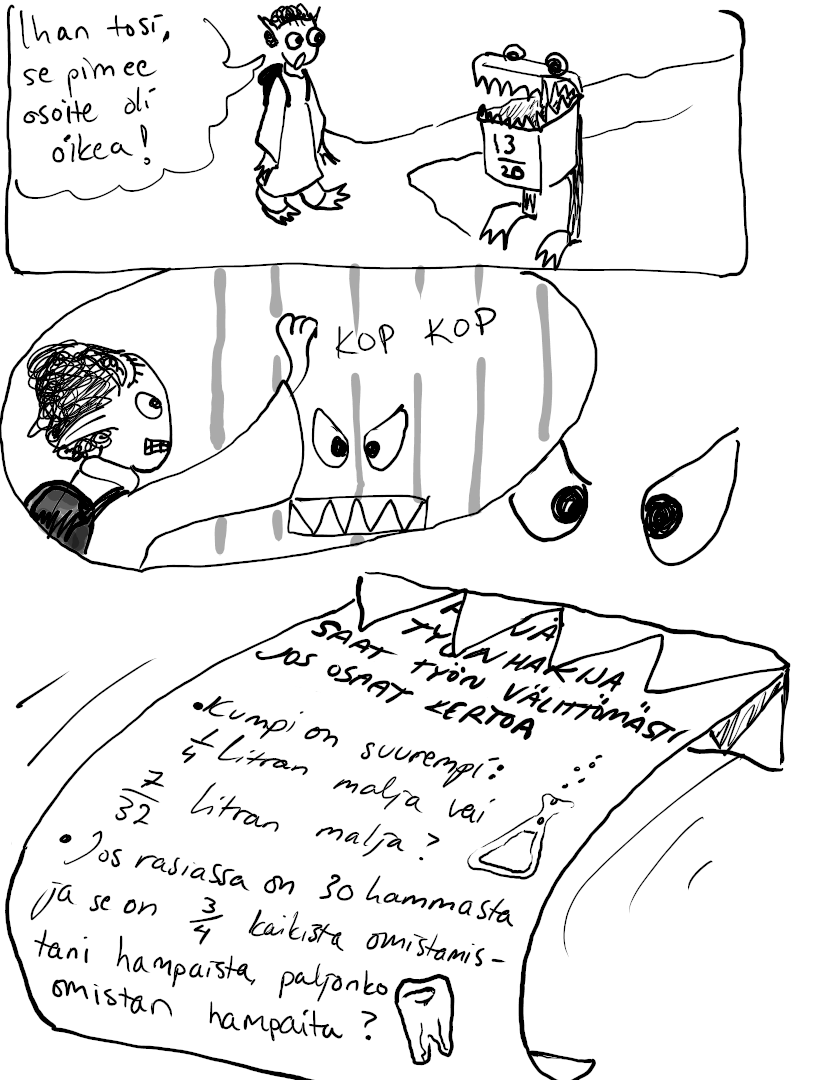 Ihan tosi,
se pimee
osoite oli
oikea!
13
20
KOP KOP
TYÖNHAKIJA
SAAT TYÖN VÄLITTÖMÄSTI
JOS OSAAT KERTOA
• Kumpi on suurempi:
1/4 Litran malja vai
7/32 litran malja?
• Jos rasiassa on 30 hammasta
ja se on 3/4 kaikista omistamis-
tani hampaista, paljonko
omistan hampaita?